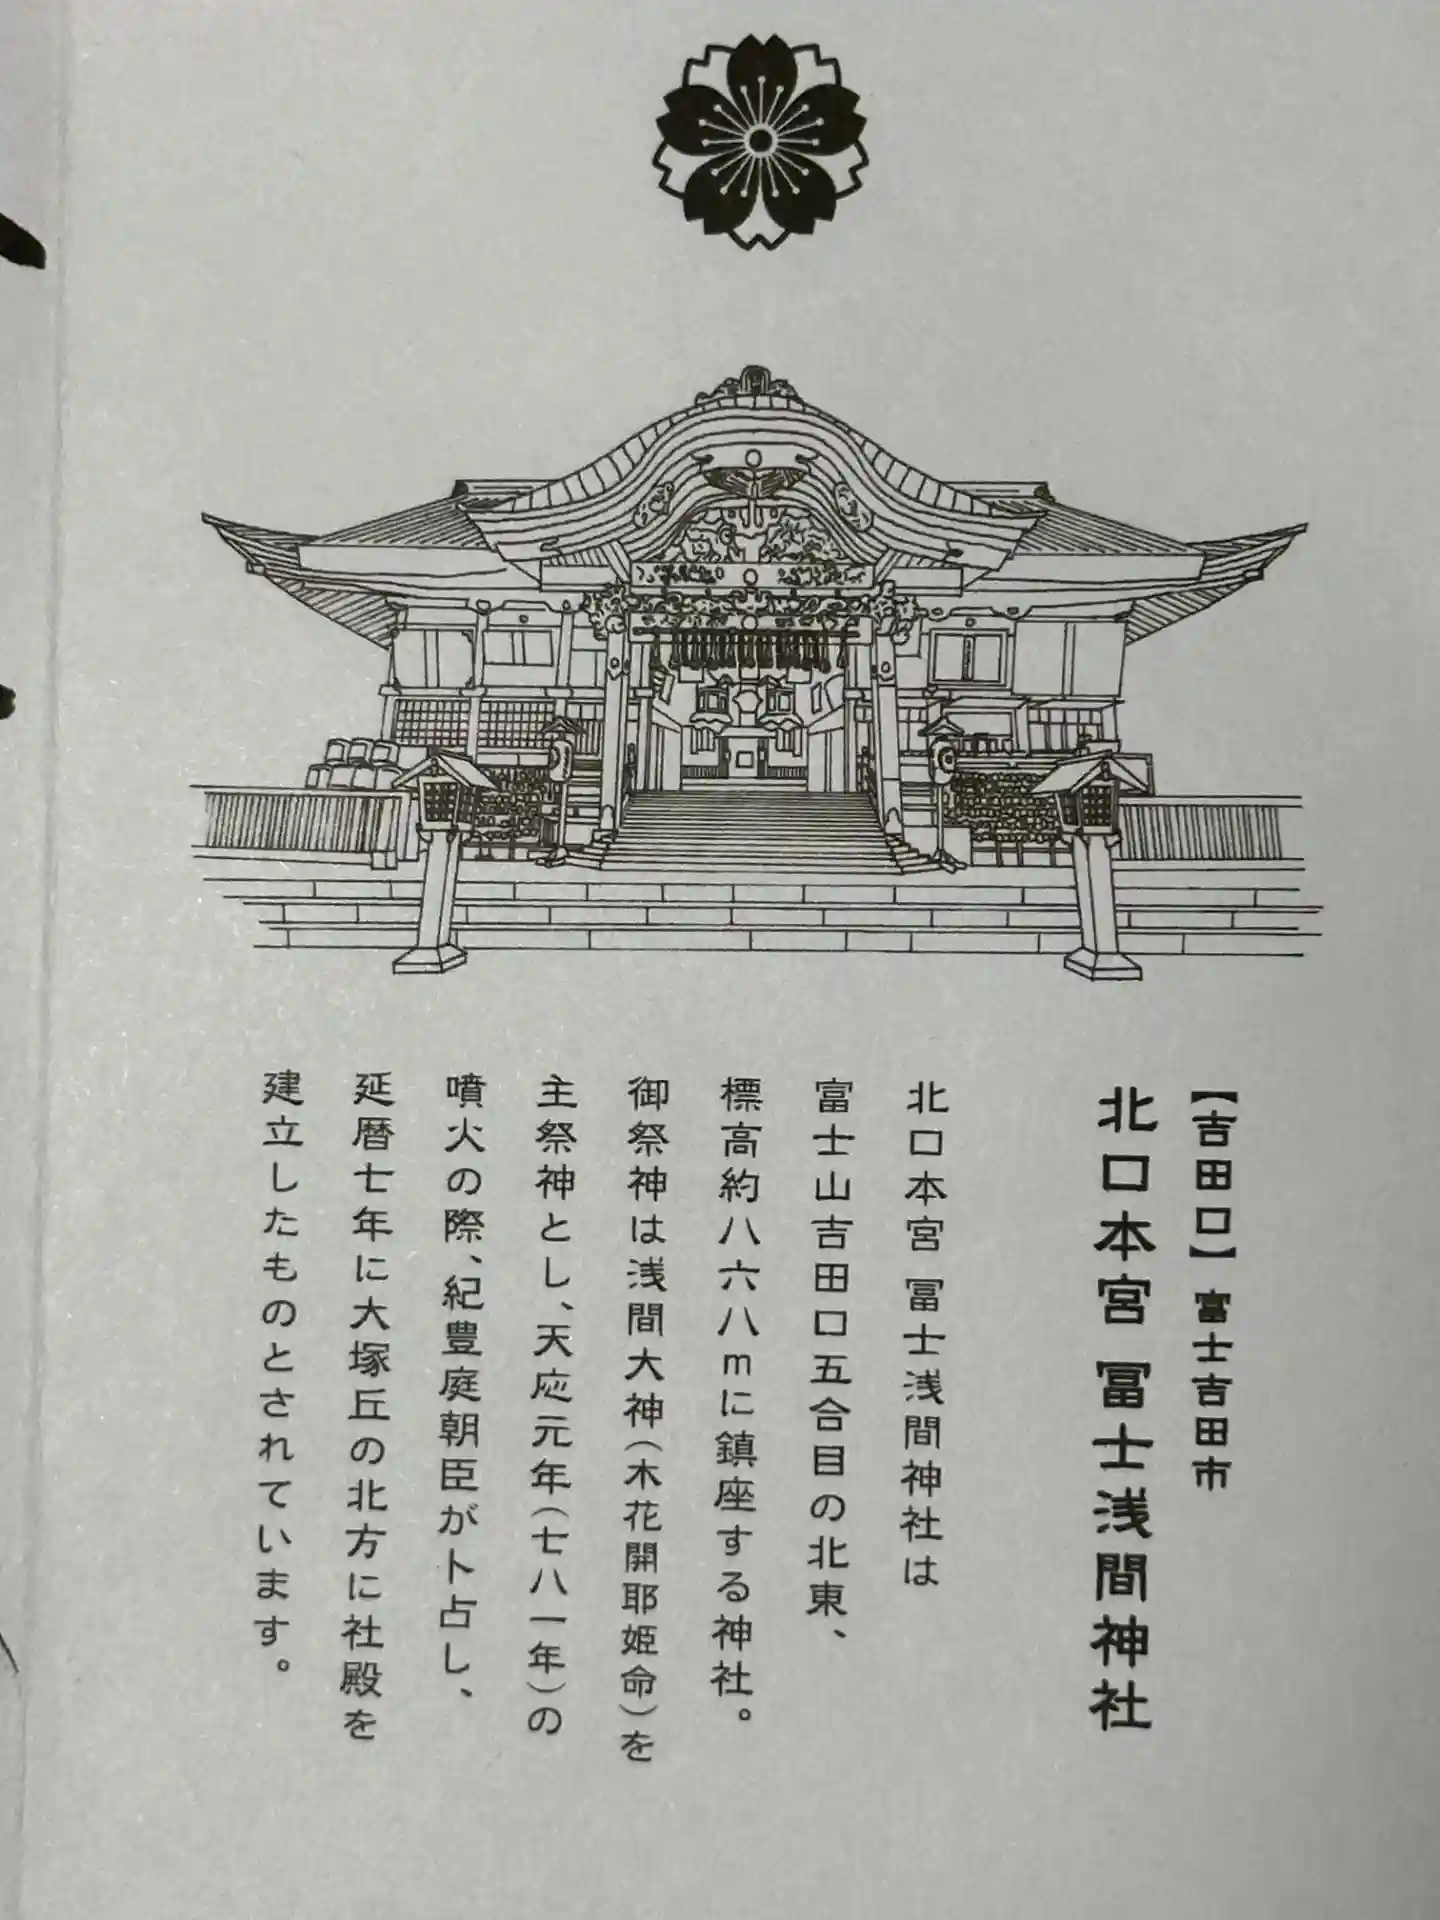 【吉田口】富士吉田市
北口本宮 冨士浅間神社
北口本宮 冨士浅間神社は
富士山吉田口五合目の北東、
標高約八六八mに鎮座する神社。
御祭神は浅間大神(木花開耶姫命)を
主祭神とし、天応元年(七八一年)の
噴火の際、紀豊庭朝臣が卜占し、
延暦七年に大塚丘の北方に社殿を
建立したものとされています。